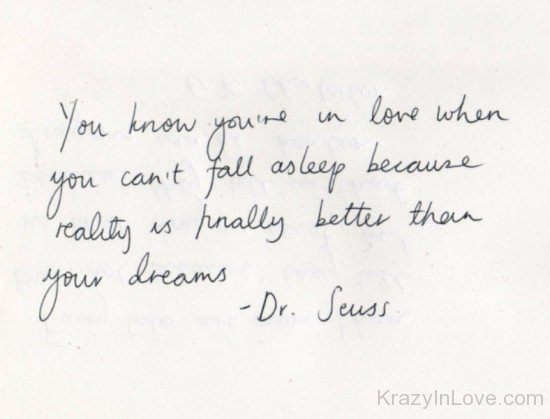 You know you're in love when
you can't fall asleep because
reality is finally better than
your dreams
-Dr. Seuss.
KrazyInLove.com